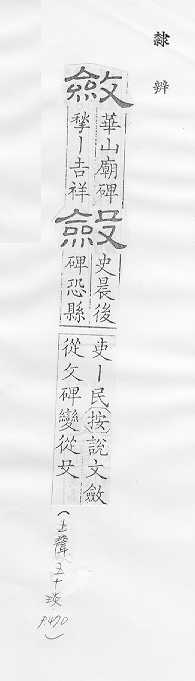 隸辨
斂
華山廟碑
揫丨吉祥
𣪘史晨後
碑恐縣
吏丨民(按)說文斂
從攵碑變從殳
(上聲五十琰 P.470)